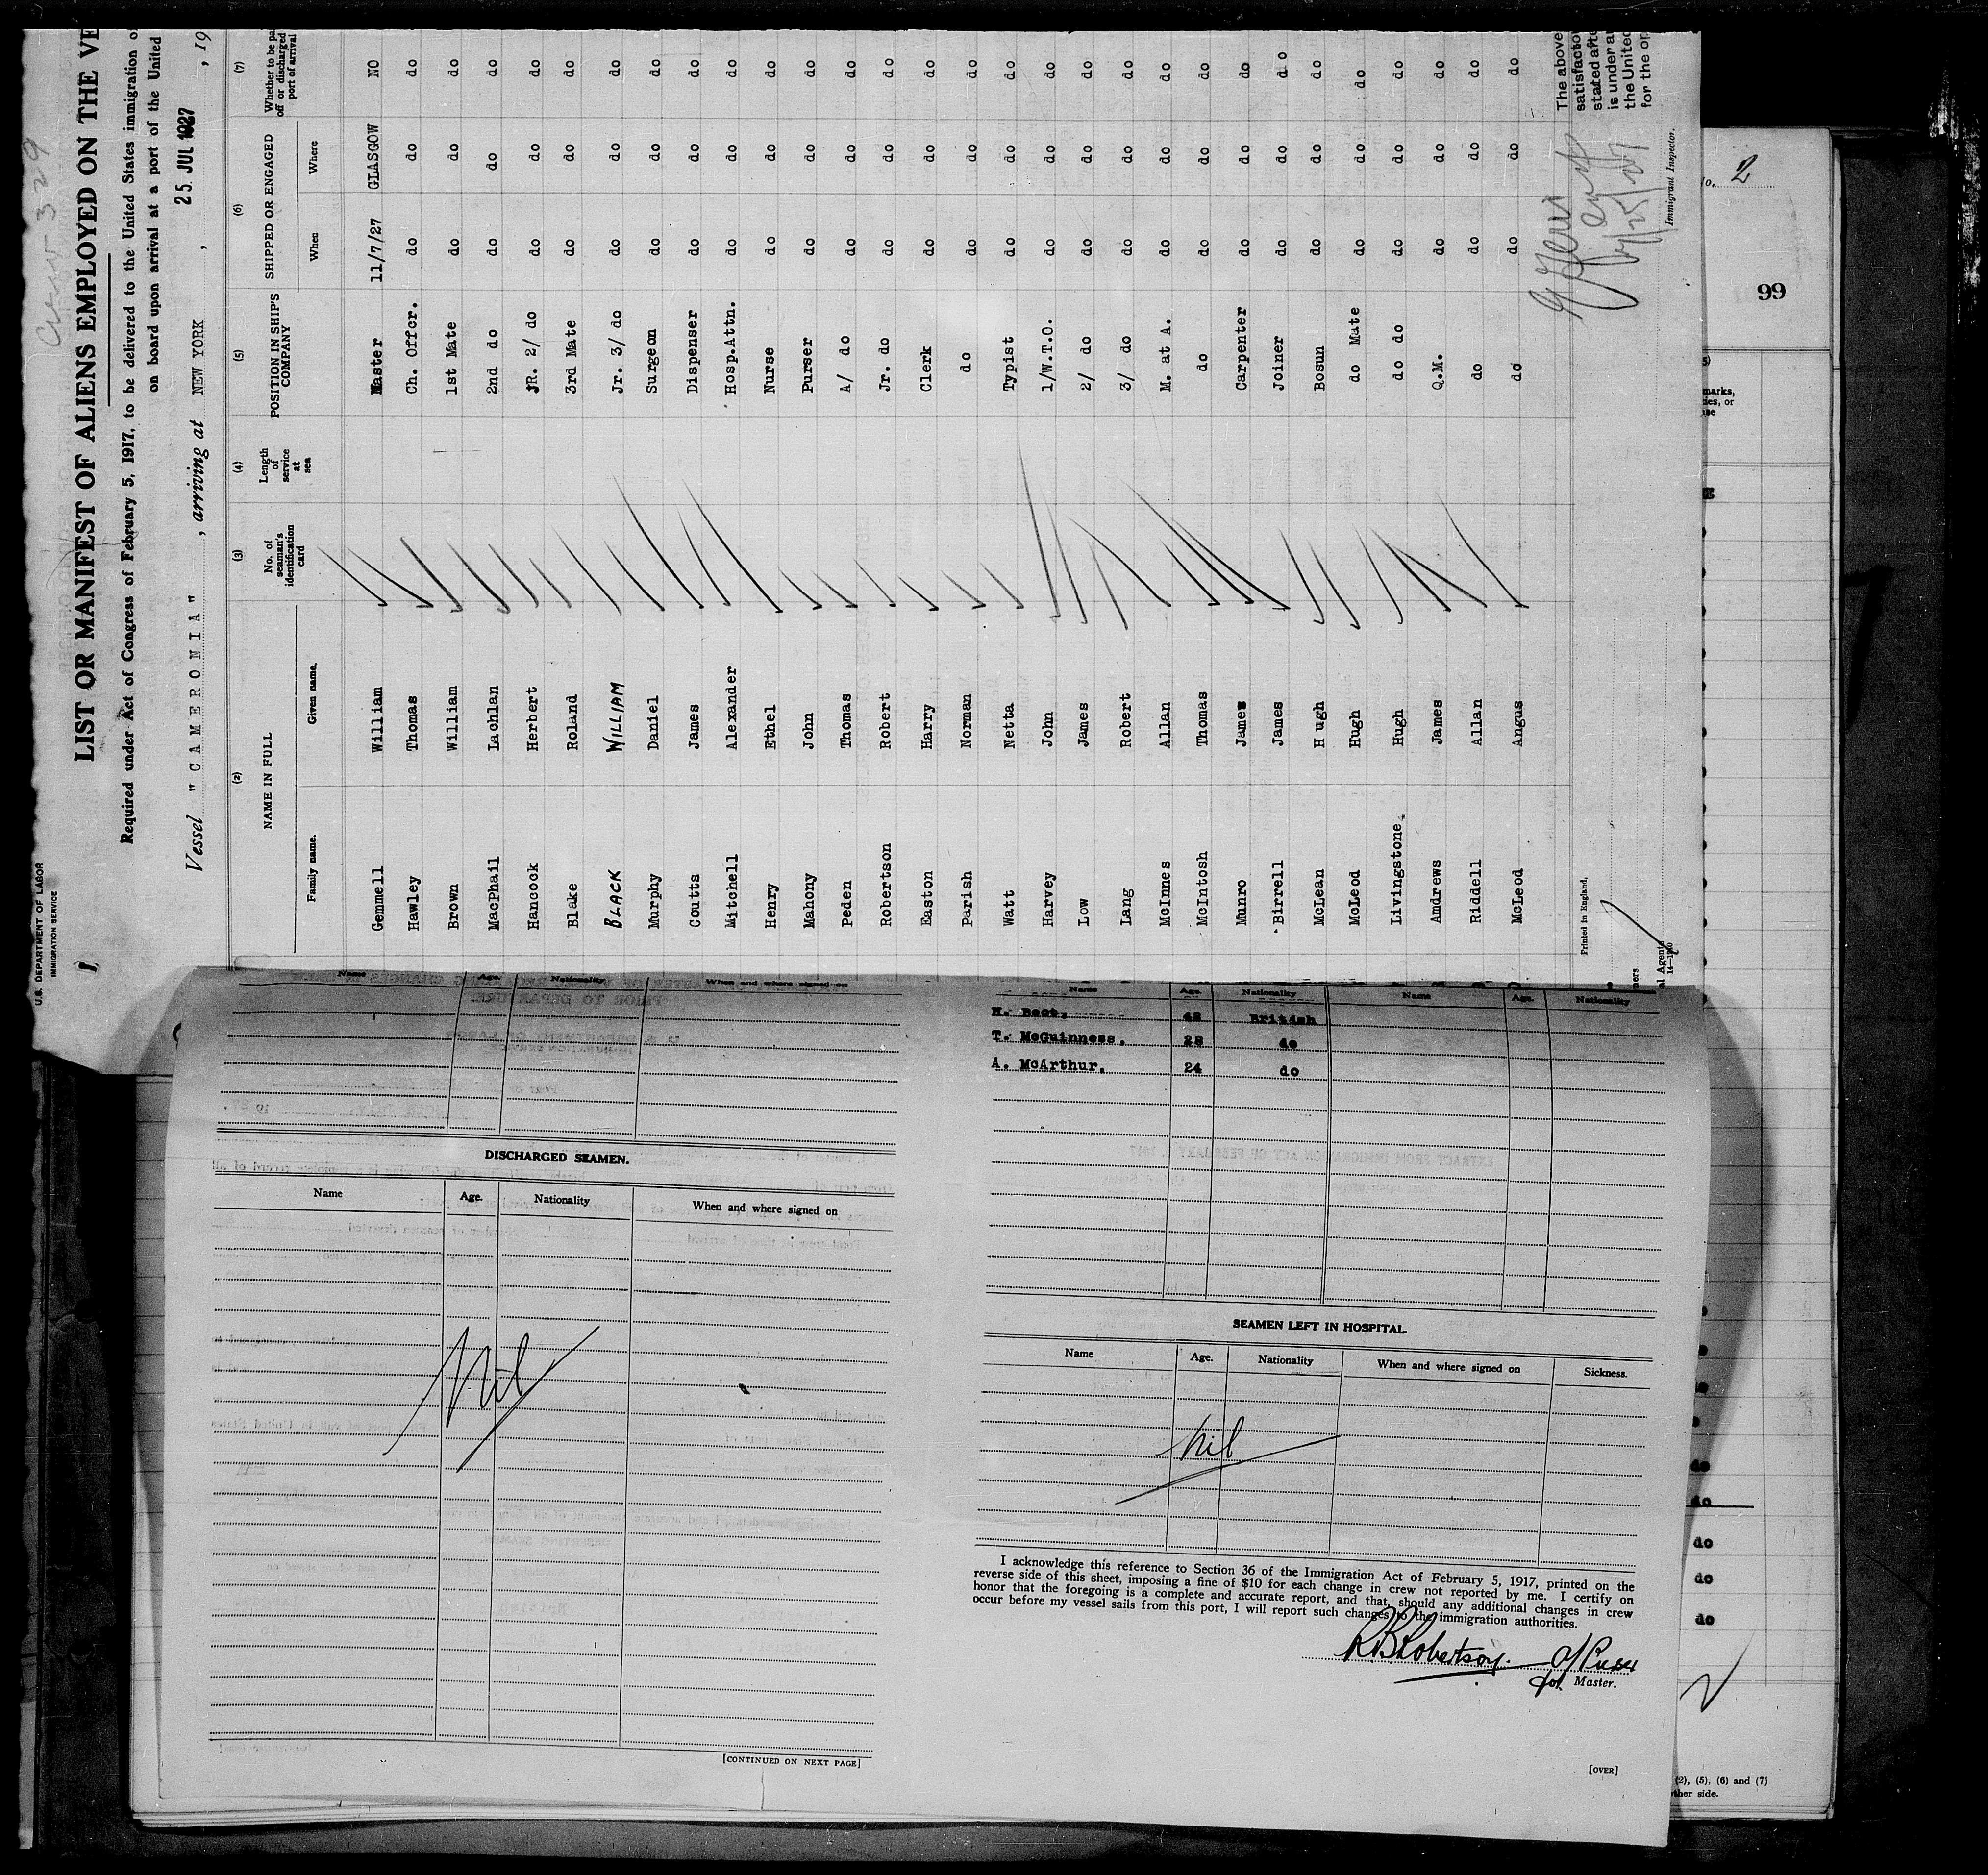 U.S. DEPARTMENT OF LABOR
IMMIGRATION SERVICE
LIST OR MANIFEST OF ALIENS EMPLOYED ON THE VE
Required under Act of Congress of February 5, 1917, to be delivered to the United States immigration o
on board upon arrival at a port of the United
Vessel "CAMERONIA", arriving at NEW YORK, 25 JUL 1927, 19
(2) (3) (4) (5) (6) (7)
NAME IN FULL No. of seaman's identification card Length of service at sea POSITION IN SHIP'S COMPANY SHIPPED OR ENGAGED Whether to be pa off or discharged port of arrival
Family name. Given name. When Where
Gemmell William Master 11/7/27 GLASGOW NO
Hawley Thomas Ch. Offcr. do do do
Brown William 1st Mate do do do
MacPhail Lachlan 2nd do do do do
Hancock Herbert JR. 2/ do do do do
Blake Roland 3rd Mate do do do
BLACK WILLIAM Jr. 3/ do do do do
Murphy Daniel Surgeon do do do
Coutts James Dispenser do do do
Mitchell Alexander Hosp.Attn. do do do
Henry Ethel Nurse do do do
Mahony John Purser do do do
Peden Thomas A/ do do do do
Robertson Robert Jr. do do do do
Easton Harry Clerk do do do
Parish Norman do do do do
Watt Netta Typist do do do
Harvey John 1/W.T.O. do do do
Low James 2/ do do do do
Lang Robert 3/ do do do do
McInnes Allan M. at A. do do do
McIntosh Thomas do do do do
Munro James Carpenter do do do
Birrell James Joiner do do do
McLean Hugh Bosun do do do
McLeod Hugh do Mate do do do
Livingstone Hugh do do do do do
Andrews James Q.M. do do do
Riddell Allan do do do do
McLeod Angus do do do do
Printed in England.
Immigrant Inspector.
The above
satisfacto
stated afte
is under a
the United
for the op
2
99
Name Age. Nationality When and where signed on
DISCHARGED SEAMEN.
Name Age. Nationality When and where signed on
Nil
[CONTINUED ON NEXT PAGE]
Name Age. Nationality Name Age. Nationality
H. Best, 42 British
T. McGuinness. 28 do
A. McArthur. 24 do
SEAMEN LEFT IN HOSPITAL.
Name Age. Nationality When and where signed on Sickness.
Nil
I acknowledge this reference to Section 36 of the Immigration Act of February 5, 1917, printed on the
reverse side of this sheet, imposing a fine of $10 for each change in crew not reported by me. I certify on
honor that the foregoing is a complete and accurate report, and that, should any additional changes in crew
occur before my vessel sails from this port, I will report such changes to the immigration authorities.
R B Robertson. A/Purser
for Master.
[OVER]
do
do
do
do
do
(2), (5), (6) and (7)
other side.